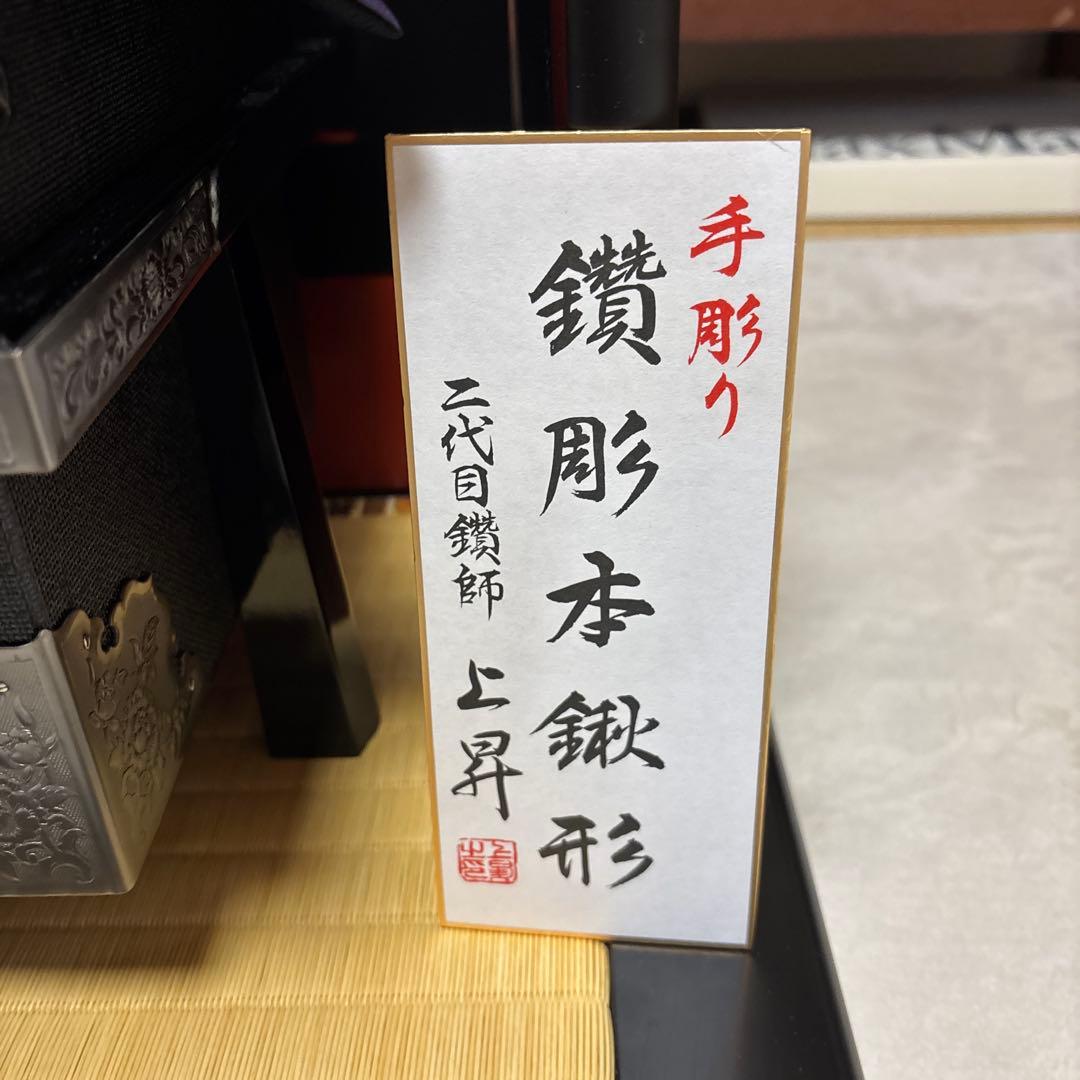 手彫り
鑚彫本鍬形
二代目鑚師 上昇